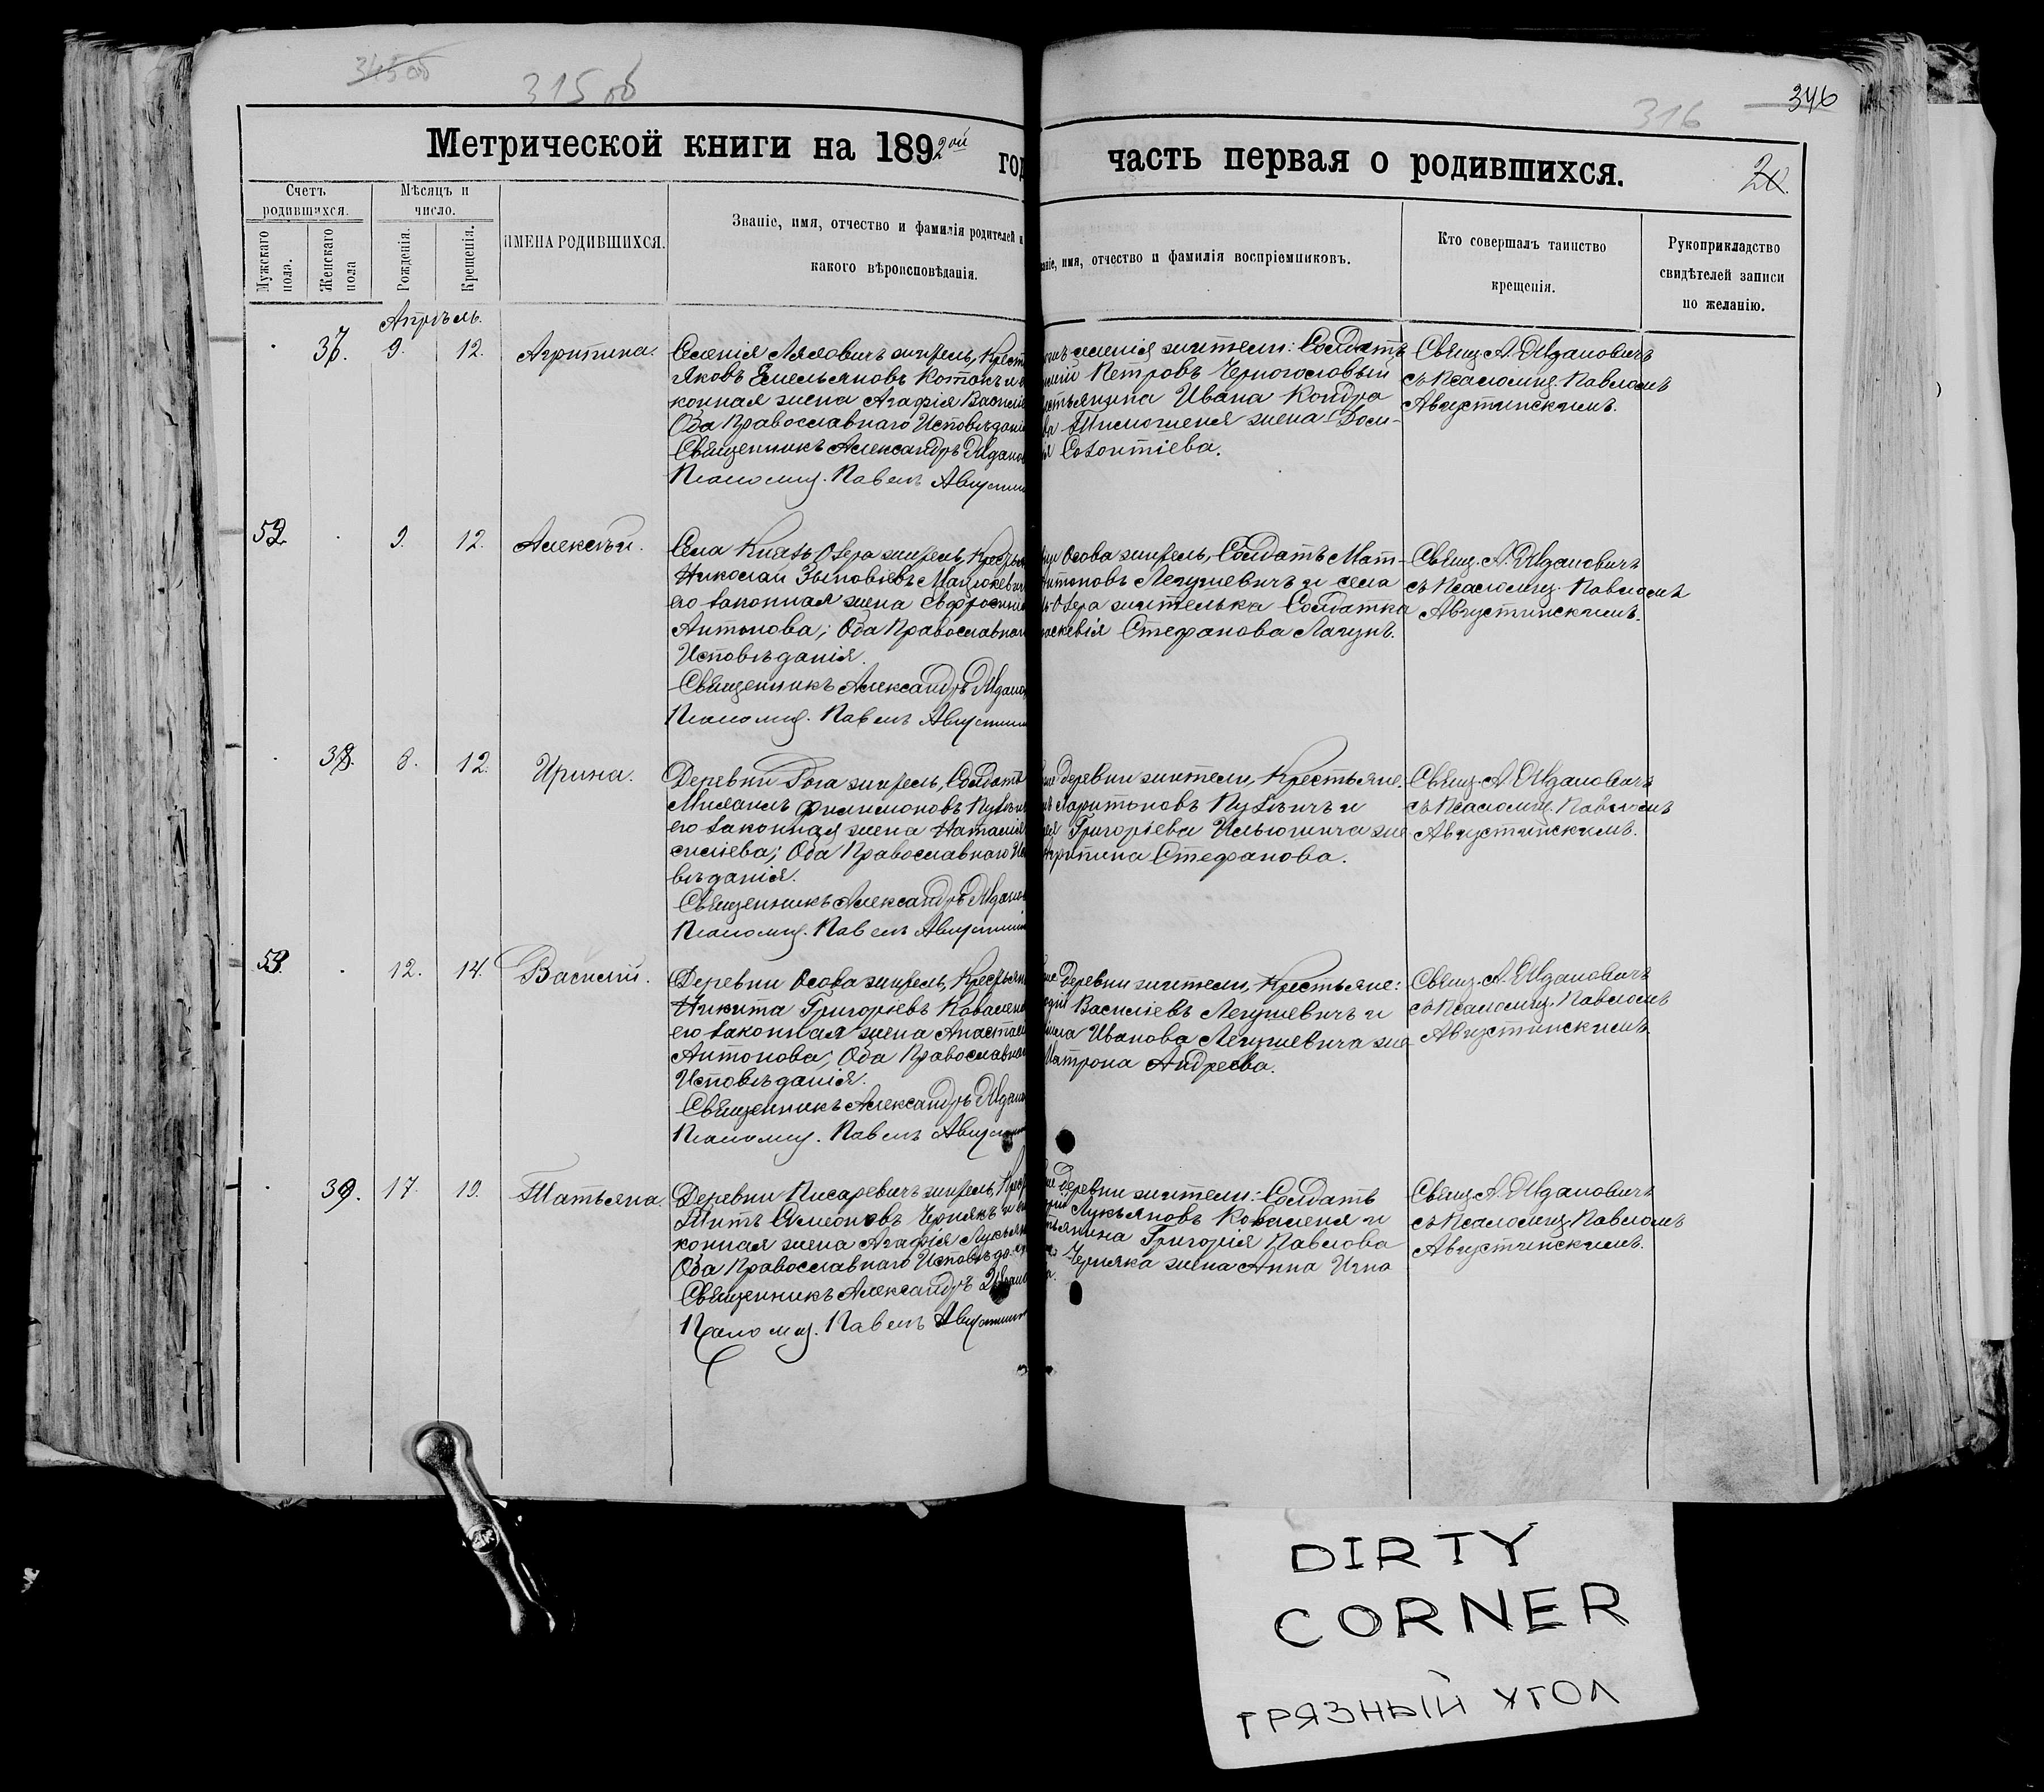 315 об
316
346
Метрической книги на 1892ой год
часть первая о родившихся.
20.
Счетъ родившихся.
Мужскаго пола.
Женскаго пола
Мѣсяцъ и число.
Рожденія.
Крещенія.
ИМЕНА РОДИВШИХСЯ.
Званіе, имя, отчество и фамилія родителей и
какого вѣроисповѣданія.
имя, отчество и фамилія воспріемниковъ.
Кто совершалъ таинство
крещенія.
Рукоприкладство
свидѣтелей записи
по желанію.
Апрѣль.
37. 9. 12. Агрипина.
Селенія Ляховичъ житель, Крест
Яковъ Емельяновъ Котокъ и
конная жена Агафія Василіе
Оба Православнаго Исповѣдані
Священникъ Александръ Ждано
Псаломщ. Павелъ Августин
селенія жители: Солдатъ
Петровъ Черноголовый
Ивана Кондра
Тимошеня жена
Свящ. А. Ждановичъ
съ Псаломщ. Павломъ
Августинскимъ.
52. 9. 12. Алексѣй.
Села Князь Озера житель, Крестья
Николай Зиновіевъ Мацукевич
его законная жена Евфросині
Антонова; Оба Православнаг
Исповѣданія.
Священникъ Александръ Ждано
Псаломщ. Павелъ Августин
Осова житель, Солдатъ Мат-
Антоновъ Легушевичъ и села
Озера жителька Солдатка
раскевія Стефанова Лагунъ.
Свящ. А. Ждановичъ
съ Псаломщ. Павломъ
Августинскимъ.
38. 8. 12. Ирина.
Деревни Рога житель, Солдатъ
Михаилъ Филимоновъ Пузевич
его законная жена Наталія
силіева; Оба Православнаго Ис
вѣданія.
Священникъ Александръ Ждано
Псаломщ. Павелъ Августин
деревни жители, Крестьяне:
Харитоновъ Пузевичъ и
Григорьева Ильюшича же
Агрипина Стефанова.
Свящ. А. Ждановичъ
съ Псаломщ. Павломъ
Августинскимъ.
53. 12. 14. Василій.
Деревни Осова житель, Крестьян
Никита Григорьевъ Ковален
его законная жена Анастасі
Антонова; Оба Православнаг
Исповѣданія.
Священникъ Александръ Ждано
Псаломщ. Павелъ Августин
деревни жители, Крестьяне:
Василіевъ Легушевичъ и
Иванова Легушевича же
Матрона Андреева.
Свящ. А. Ждановичъ
съ Псаломщ. Павломъ
Августинскимъ.
39. 17. 19. Татьяна.
Деревни Писаревичъ житель, Крес
Титъ Симеоновъ Чернякъ и
конная жена Агафія Лукья
Оба Православнаго Исповѣда-
Священникъ Александръ Ждано
Псаломщ. Павелъ Августин
деревни жители: Солдатъ
Лукьяновъ Коваленя и
Григорія Павлова
Черняка жена Анна Игна
Свящ. А. Ждановичъ
съ Псаломщ. Павломъ
Августинскимъ.
DIRTY
CORNER
ГРЯЗНЫЙ УГОЛ